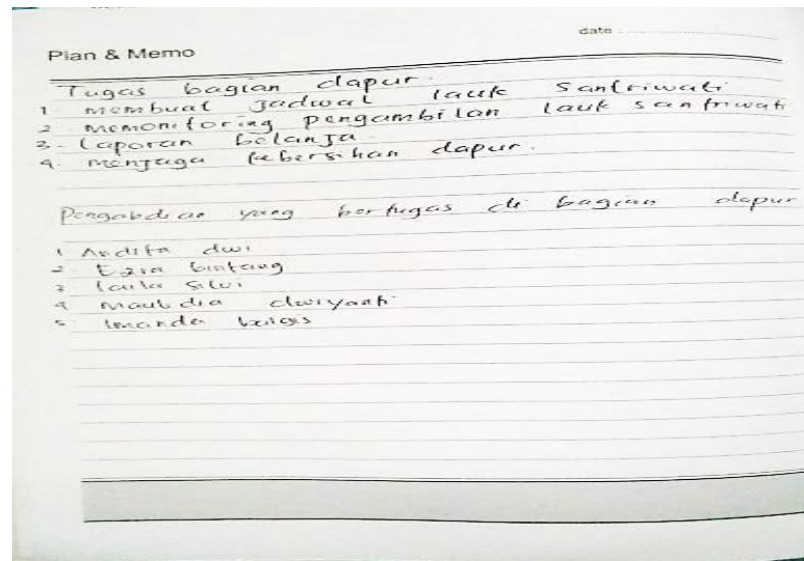 date :
Plan & Memo
Tugas bagian dapur.
1 membuat Jadwal lauk Santriwati
2 memonitoring pengambilan lauk santriwati
3 - Laporan belanja
4. menjaga kebersihan dapur.
Pengabdian yang bertugas di bagian dapur
1 Andita dwi
2 Ezra bintang
3 Laila Silvi
4 dwiyanti
5 balqis